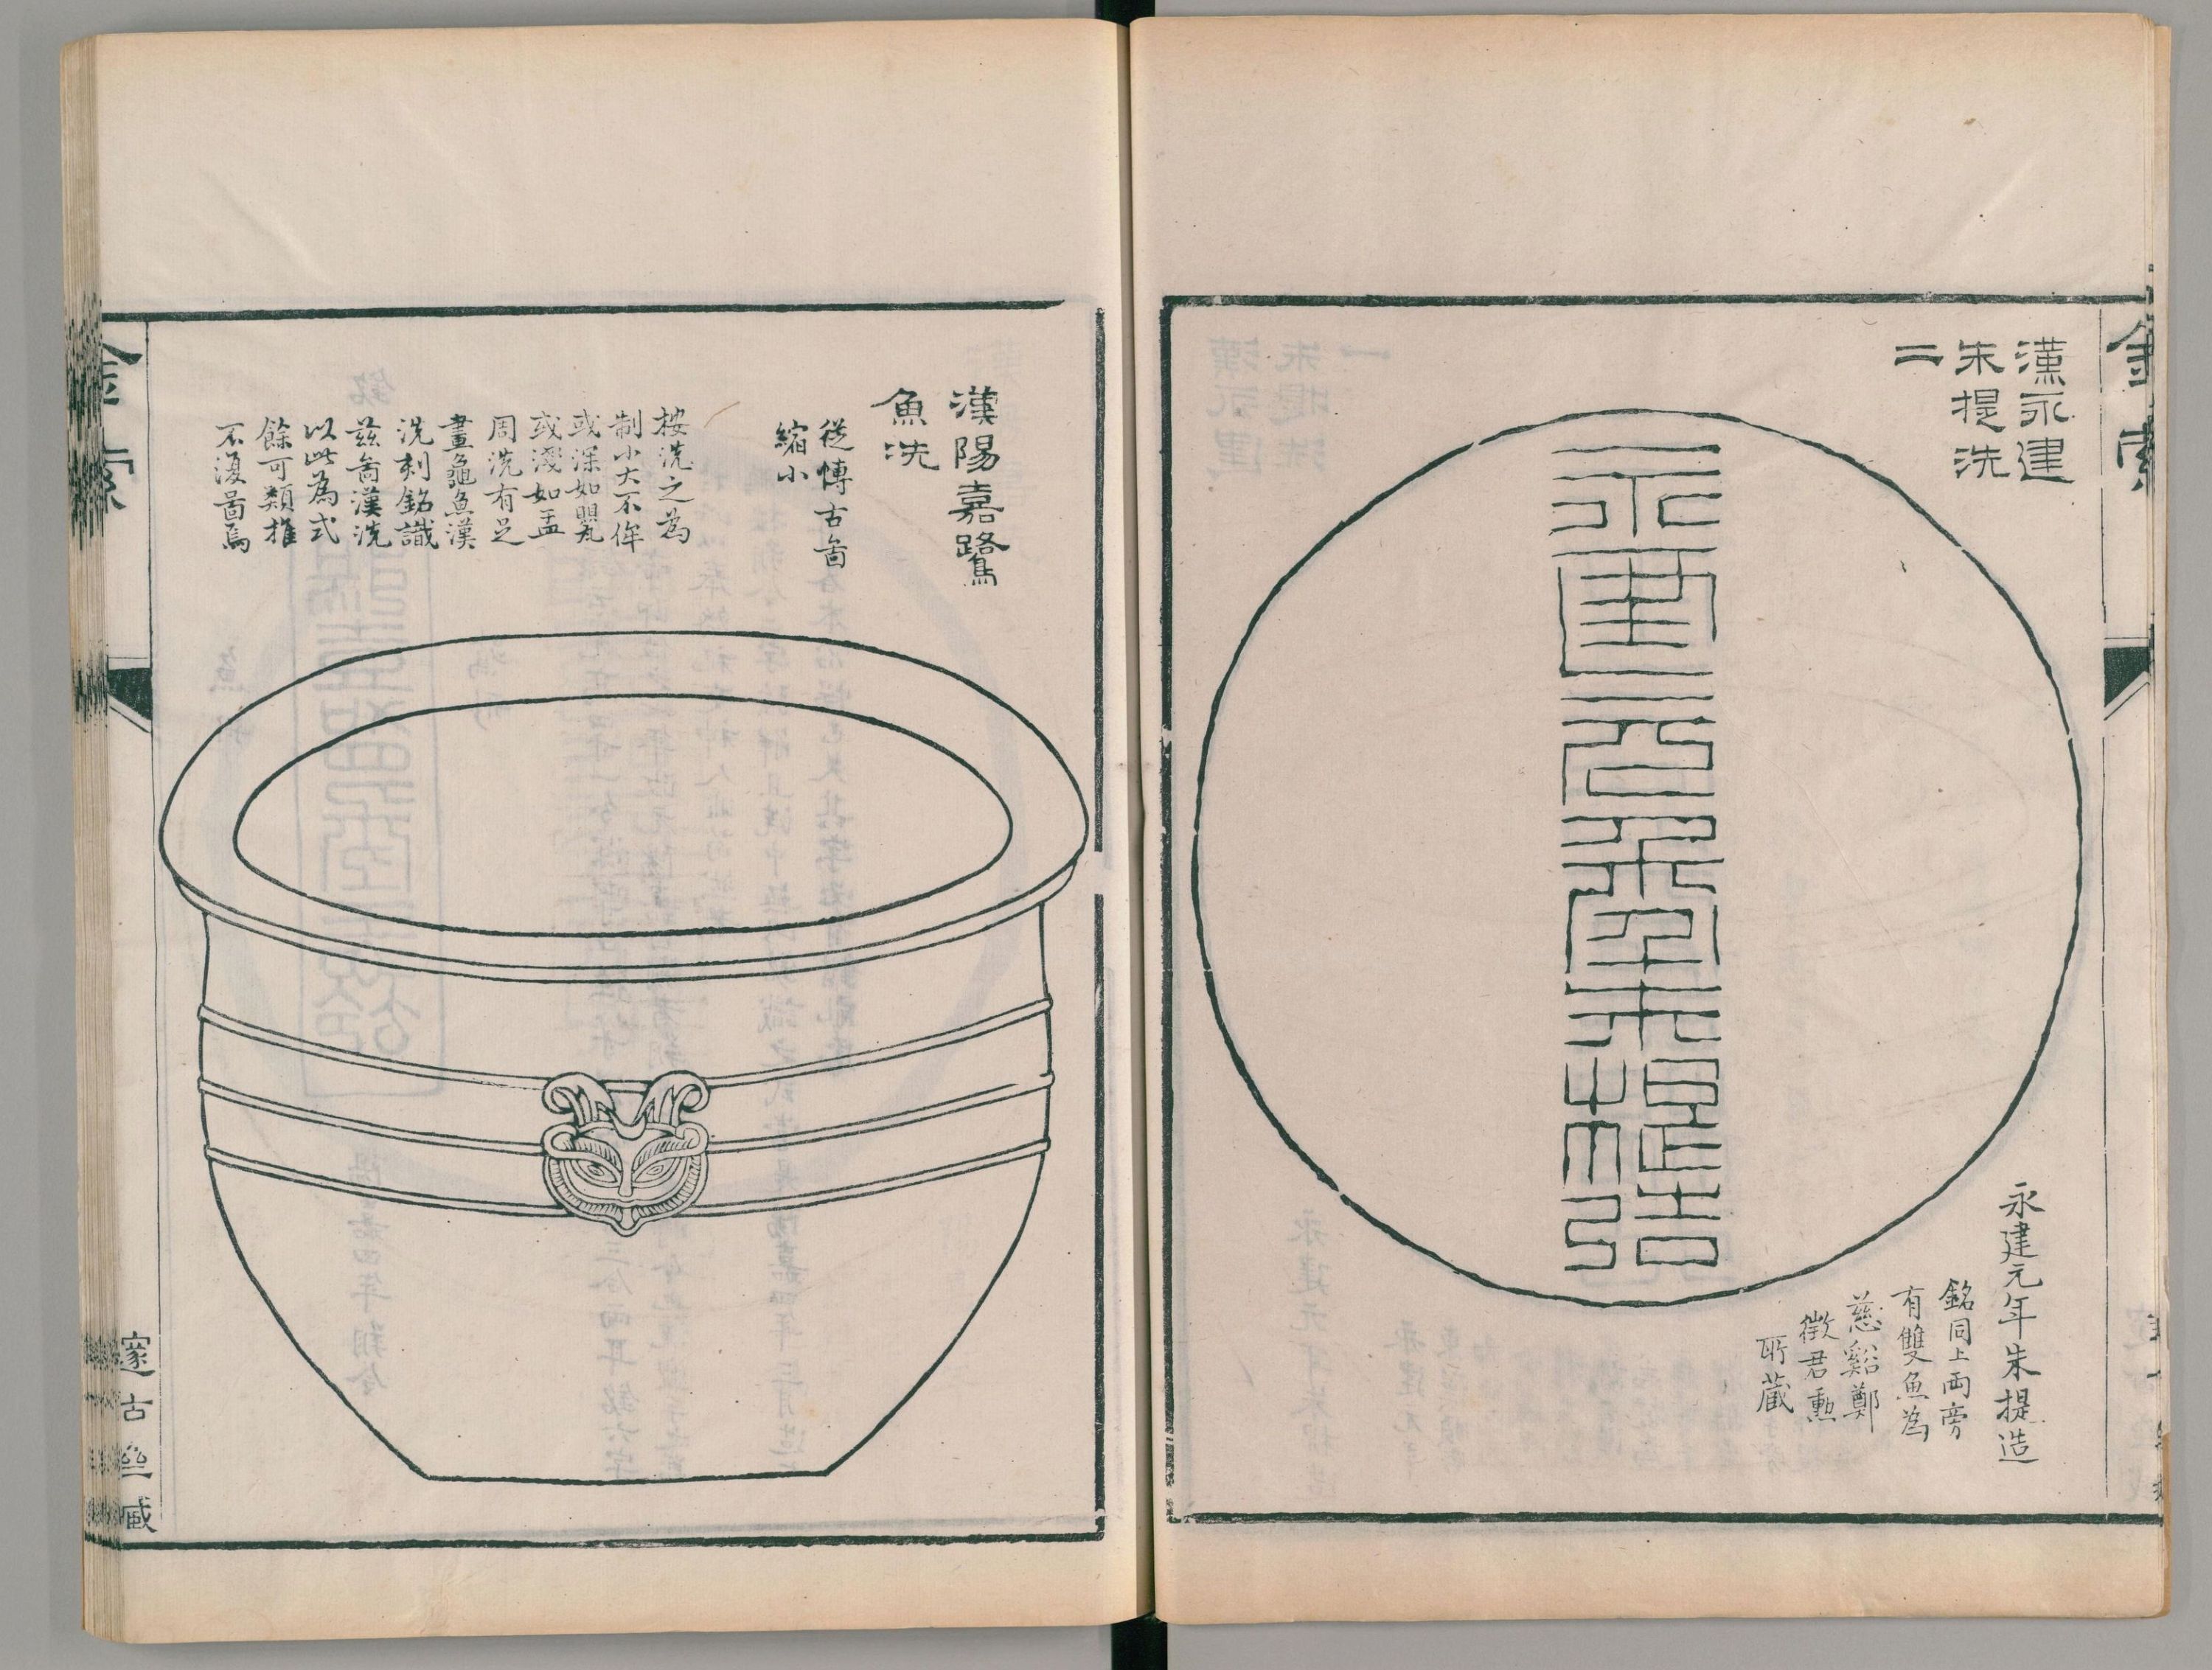 漢永建
朱提洗
二
永建元年朱提造
永建元年朱提造
銘同上兩旁
有雙魚為
慈谿鄭
徵君勳
所藏
漢陽嘉鷺
魚洗
從愽古啚
縮小
按洗之為
制小大不侔
或深如甖
或淺如盂
周洗有足
畫龜魚漢
洗刻銘識
兹啚漢洗
以此為式
餘可類推
不復啚焉
金索
邃古亝臧